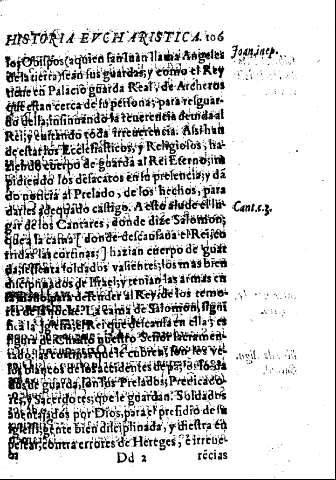 HISTORIA EVCHARISTICA. 106
los Obispos (a quien san Iuan llama Angeles
de la tierra) sean sus guardas, y como el Rey
tiene en Palacio guarda Real, de Archeros
que estan cerca de su persona, para resguar-
do della, insinuando la reuerencia deuida al
Rei, y euitando toda irreuerencia. Assi han
de estar los Ecclesiasticos, y Religiosos, ha-
ziendo cuerpo de guarda al Rei Eterno, im
pidiendo los desacatos en su presencia, y dã
do noticia al Prelado, de los hechos, para
darles adequado castigo. A esto alude el lu-
gar de los Cantares, donde dize Salomon,
que a la cama [donde descansaua el Rei, co
rridas las cortinas;] hazian cuerpo de guar
da, sesenta soldados valientes, los mas bien
disciplinados de Israel, y tenian las armas en
la mano, para defender al Rey, de los temo-
res de la noche. La cama de Salomon, signi
fica la Iglesia, el Rei que descansa en ella, es
figura de Christo nuestro Señor Sacramen-
tado, las cortinas que le cubren, son los ve-
los blancos de los accidentes de pan, los sol
dados de guarda, son los Prelados, Predicado-
res, y Sacerdotes, que le guardan. Soldados
auentajados por Dios, para el presidio de su
Iglesia, gente bien disciplinada, y diestra en
pelear, contra errores de Hereges, è irreue-
Dd 2 rẽcias
Joan. in ep.
Cant. c. 3.